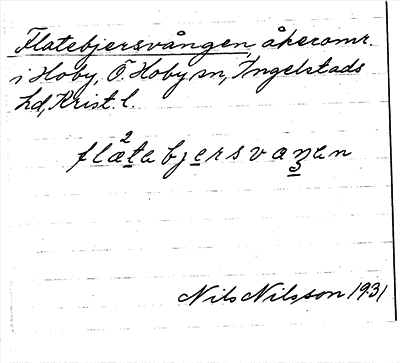 Flatebjersvången, åkeromr.
i Hoby, Ö. Hoby sn, Ingelstads
hd, Krist. l.
2
flatebjersvaŋen
Nils Nilsson 1931